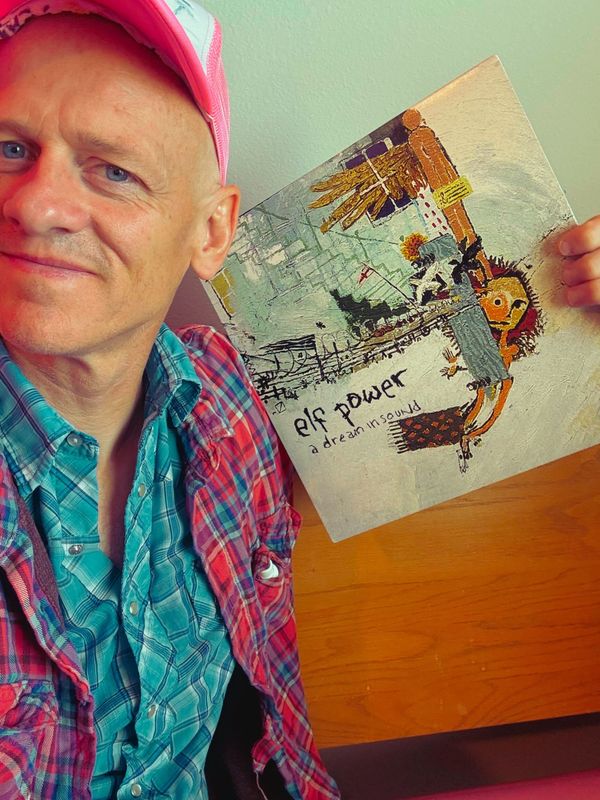 elf power
a dream in sound